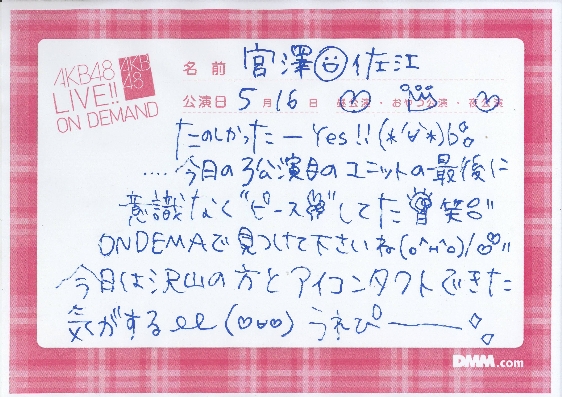 AKB48
LIVE!!
ON DEMAND
AKB
48
名前 宮澤佐江
公演日 5月16日 昼公演・おやつ公演・夜公演
たのしかったーYes!!(*'∀'*)b
....今日の3公演目のユニットの最後に
意識なく"ピース"してた 笑
ONDEMAで見つけて下さいね(o^н^o)/
今日は沢山の方とアイコンタクトできた
気がするee(♡∪♡)うれぴー
DMM.com